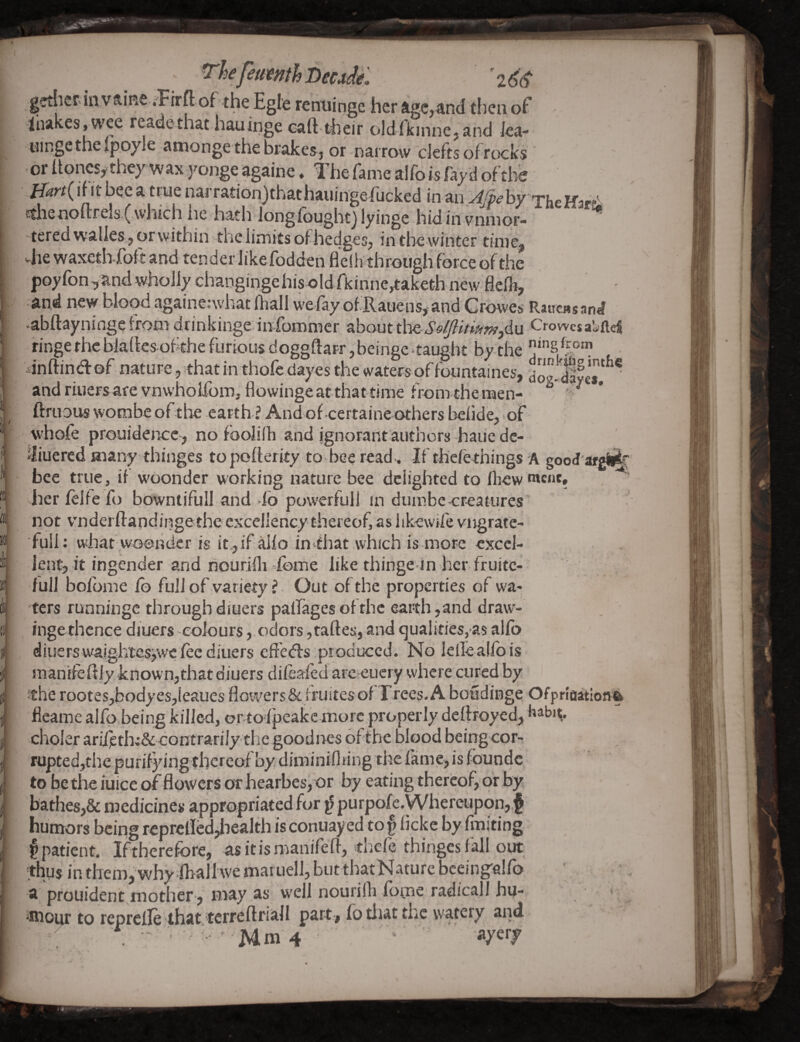 The seuenth Decade. 266
gether in vaine. First of the Egle renuinge her age, and then of
snakes, wee reade that hauinge cast their old skinne, and lea-
uinge the spoyle amonge the brakes, or narrow clefts of rocks
or stones, they wax yonge againe. The same also is sayd of the
Hart (if it bee a true narration) that hauinge sucked in an Aspe by The Hart.
the nostrels (which he hath long sought) lyinge hid in vnmor-
tered walles, or within the limits of hedges, in the winter time,
he waxeth soft and tender like sodden flesh through force of the
poyson, and wholly changinge his old skinne, taketh new flesh,
and new blood againe: what shall we say of Rauens, and Crowes Rauens and
abstayninge from drinkinge in sommer about the Solstitium, du Crowes abstei
ringe the blastes of the furious doggstarr, beinge taught by the ning from
instinct of nature, that in those dayes the waters of fountaines, drinking in the
and riuers are vnwholsom, flowinge at that time from the men- dog-dayes.
struous wombe of the earth? And of certaine others beside, of
whose prouidence, no foolish and ignorant authors haue de-
liuered many thinges to posterity to bee read. If these things A good argu-
bee true, if woonder working nature bee delighted to shew ment.
her selfe so bowntifull and so powerfull in dumbe creatures
not vnderstandinge the excellency thereof, as likewise vngrate-
full: what woonder is it, if also in that which is more excel-
lent, it ingender and nourish some like thinge in her fruite-
full bosome so full of variety? Out of the properties of wa-
ters runninge through diuers passages of the earth, and draw-
inge thence diuers colours, odors, tastes, and qualities, as also
diuers waightes, we see diuers effects produced. No lesse also is
manifestly known, that diuers diseased are euery where cured by
the rootes, bodyes, leaues flowers & fruites of Trees. A boūdinge Of priuation &
fleame also being killed, or to speake more properly destroyed, habit.
choler ariseth: & contrarily the goodnes of the blood being cor-
rupted, the purifying thereof by diminishing the same, is founde
to be the iuice of flowers or hearbes, or by eating thereof, or by
bathes, & medicines appropriated for yͤ purpose. Whereupon, yͤ
humors being repressed, health is conuayed to yͤ sicke by smiting
yͤ patient. If therefore, as it is manifest, these thinges fall out
thus in them, why shall we maruell, but that Nature beeing also
a prouident mother, may as well nourish some radicall hu-
mour to represse that terrestriall part, so that the watery and
Mm 4 ayery